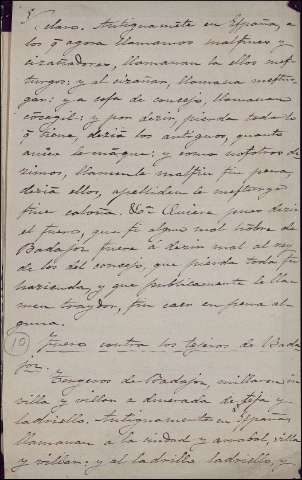 claro. Antiguamẽte en España, a
los q̃ agora llamamos malsines y
cizañadores, llamauan la ellos mes-
turgos: y al cizañar, llamaua mestur-
gar: y a cosa de concejo, llamauan
côcegil: y por dezir, pierda todo lo
q̃ tiene, deziã los antiguos, quanto
ouiere le mãque: y como nosotros de
zimos, llamenle malsin sin pena,
deziã ellos, apelliden le mesturgo
sine caloña. Quiere pues dezir
el fuero, que si algun mal hõbre de
Badajoz fuere a dezir mal al rey
de los del concejo, que pierda toda su
hazienda, y que publicamente le lla
men traydor, sin caer en pena al-
guna.
10 Fuero contra los tejeros de Bada
joz.
Tengeros de Badajoz, millaren in
villa y villon a dinerada de teja y
ladriello. Antiguamente en España
llamauan a la ciudad y arrabal, villa
y villon: y al ladrillo ladriello, y